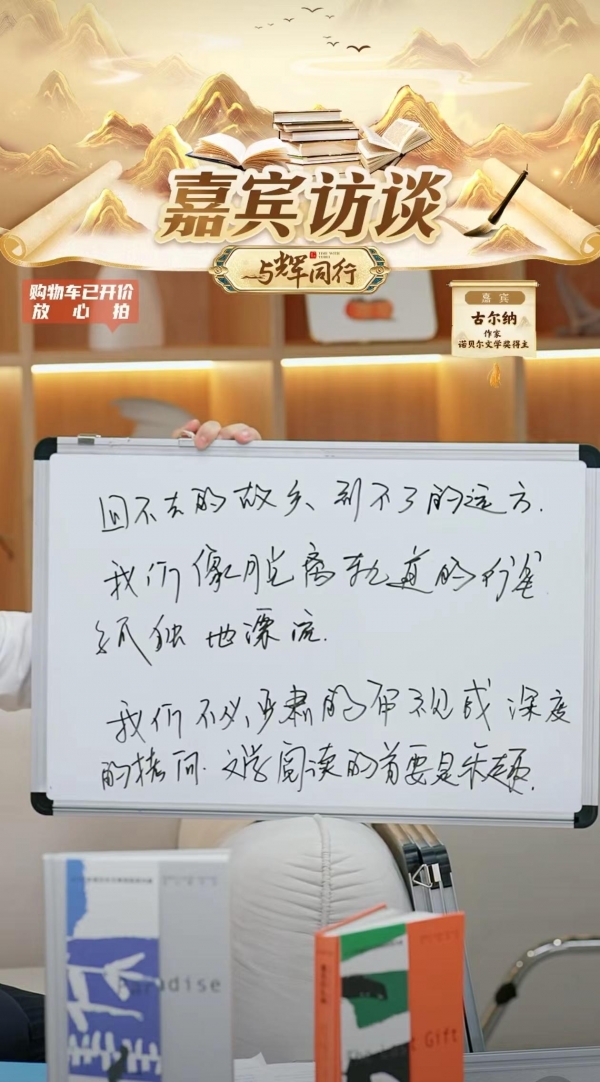 嘉宾访谈
与辉同行
购物车已开价
放心拍
嘉宾
古尔纳
作家
诺贝尔文学奖得主
回不去的故乡、到不了的远方.
我们像脱离轨道的行星
孤独地漂流.
我们不必严肃的审视或深度
的拷问.文学阅读的首要是乐趣.
Paradise
The Last Gift